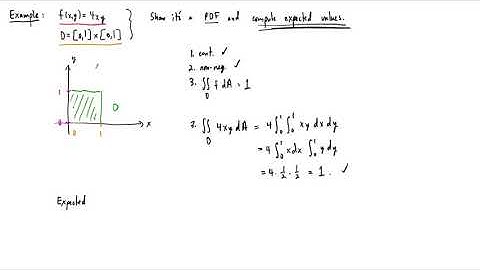 Example: f(x,y) = 4xy } Show it's a PDF and compute expected values.
D = [0,1] x [0,1]
1. cont. ✓
2. non-neg. ✓
3. ∬_D f dA = 1
y
1
D
0
0 1 x
3. ∬_D 4xy dA = 4 ∫_0^1 ∫_0^1 xy dx dy
= 4 ∫_0^1 x dx ∫_0^1 y dy
= 4 · 1/2 · 1/2 = 1. ✓
Expected